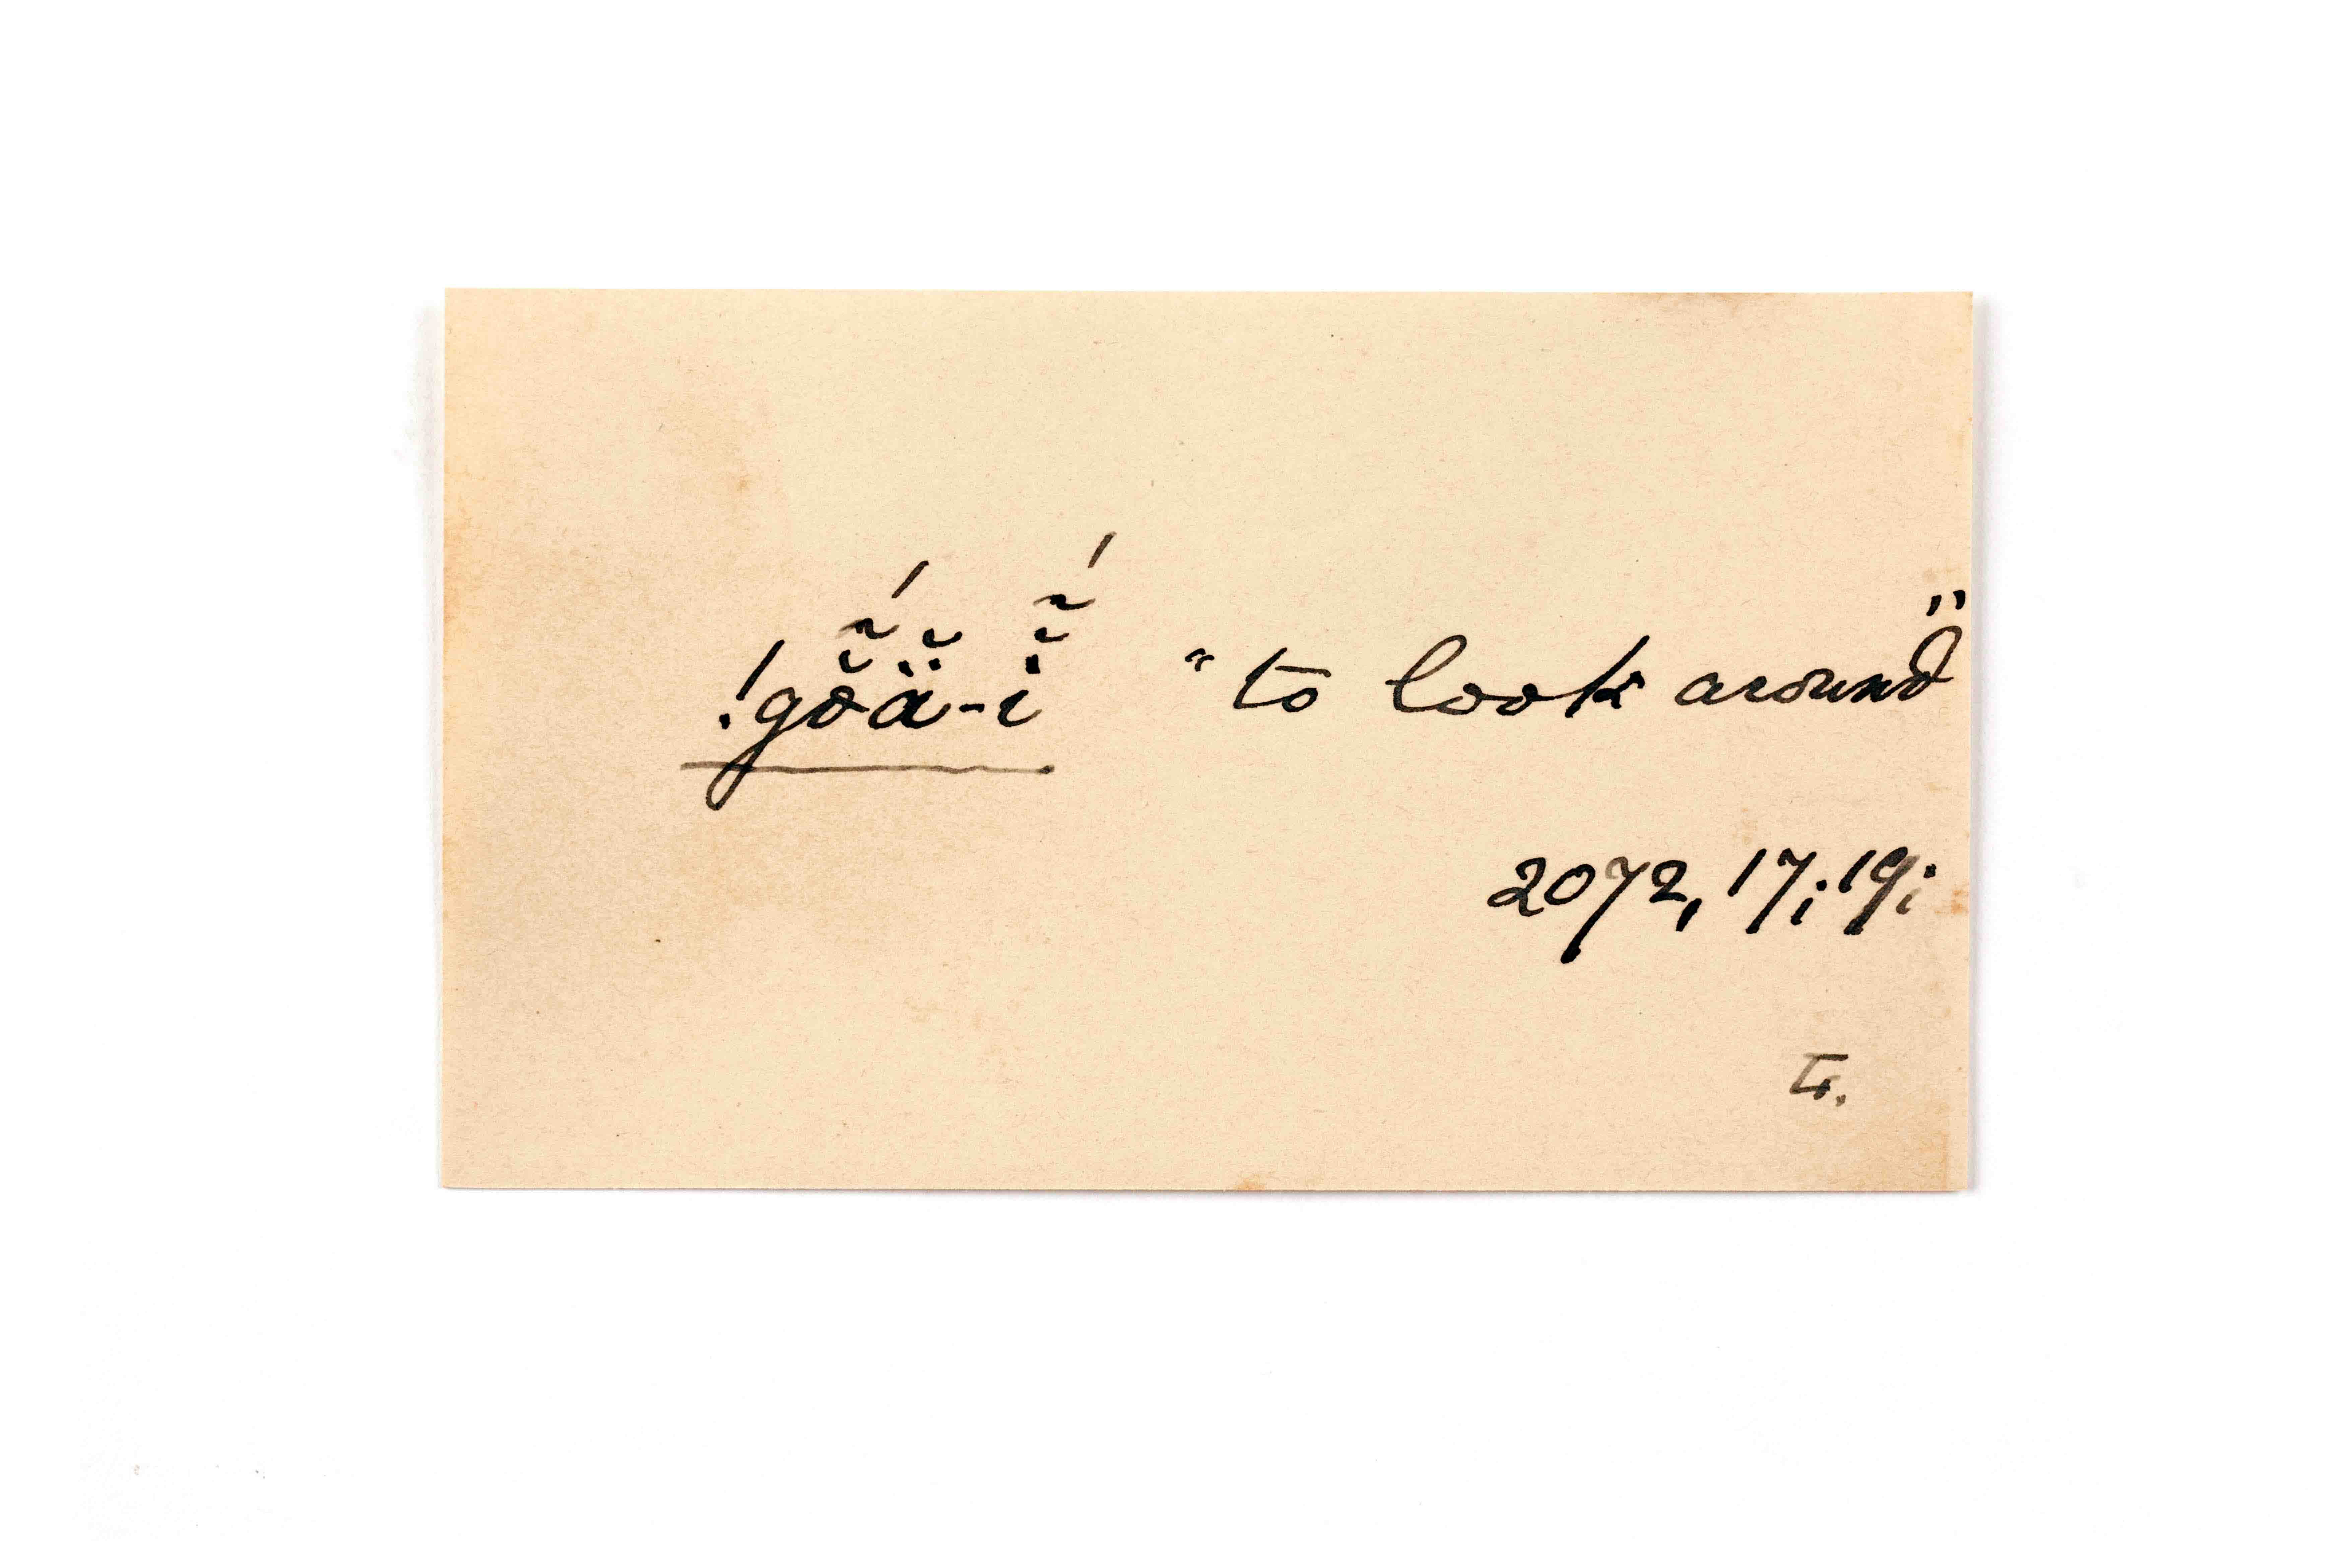 !gŏ̃́ä̆-ĭ̃́ "to look around"
2072, 17; 19;
Tr.